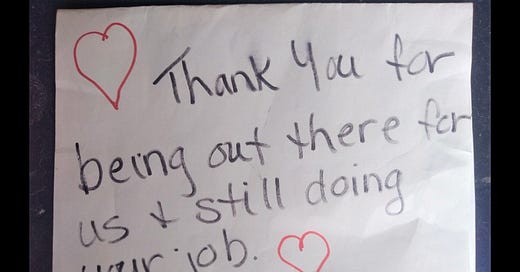 Thank You for
being out there for
us + still doing
your job.